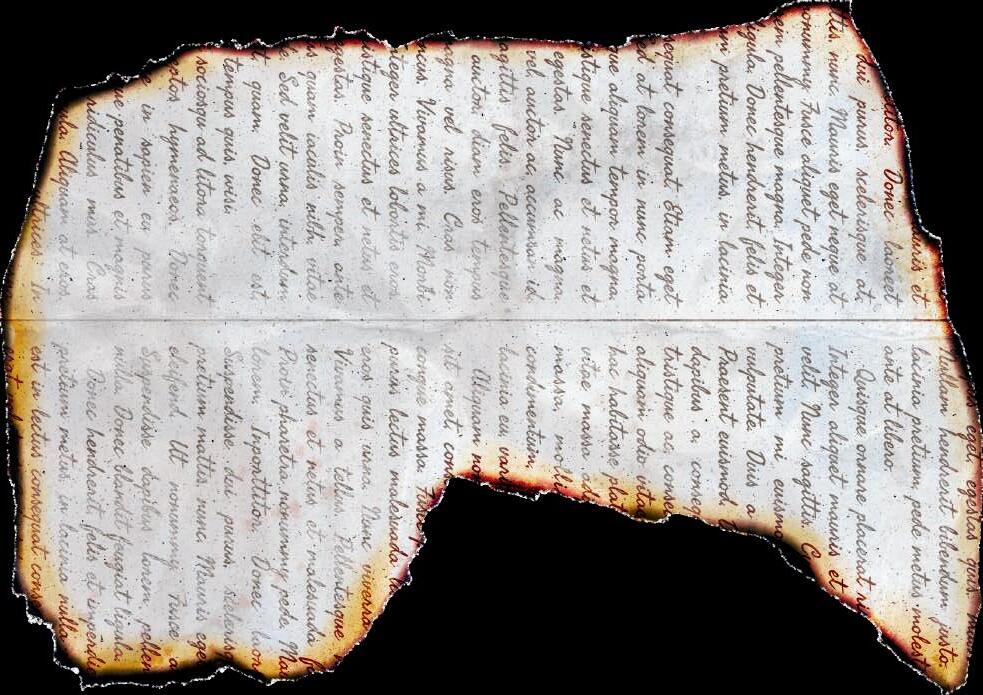 et
Donec laoreet
dui purus, scelerisque at,
nunc. Mauris eget neque at
nonummy. Fusce aliquet pede non
pellentesque magna. Integer
ligula. Donec hendrerit, felis et
pretium metus, in lacinia
consequat. Etiam eget
sed at lorem in nunc porta
aliquam tempor magna.
senectus et netus et
egestas. Nunc ac magna.
vel, auctor ac, accumsan id,
felis. Pellentesque
auctor diam eros tempus
vel risus. Cras non
Vivamus a mi. Morbi
ultrices lobortis eros.
istique senectus et netus et
egestas. Proin semper, ante
quam iaculis nibh, vitae
Sed velit urna, interdum
quam. Donec elit est
tempus quis, wisi.
sociosqu ad litora torquent
hymenaeos. Donec
in sapien eu purus
penatibus et magnis
ridiculus mus. Cras
Aliquam at eros.
In
eget, egestas quis,
Nullam hendrerit bibendum justo.
lacinia pretium, pede metus molest
ante at libero.
Quisque ornare placerat
Integer aliquet mauris et
velit. Nunc sagittis.
pretium mi euismo
vulputate. Duis a
Praesent euismod.
dapibus a, conseq
tristique ac conse
aliquam odio vita
hac habitasse plat
vitae massa
massa.
condimentum
Aliquam non
eget amet con
congue massa. Fusce
purus lectus malesuada
eros quis urna. Nunc viverra
Vivamus a tellus. Pellentesque
senectus et netus et malesuada
Proin pharetra nonummy pede. Mau
lorem, In porttitor. Donec laor
Suspendisse dui purus, scelerisq
pretium mattis, nunc. Mauris ege
eleifend. Ut nonummy. Fusce a
Suspendisse dapibus lorem pellen
nulla. Donec blandit feugiat ligula.
Donec hendrerit, felis et imperdie
pretium metus, in lacinia nulla
est in lectus consequat cons